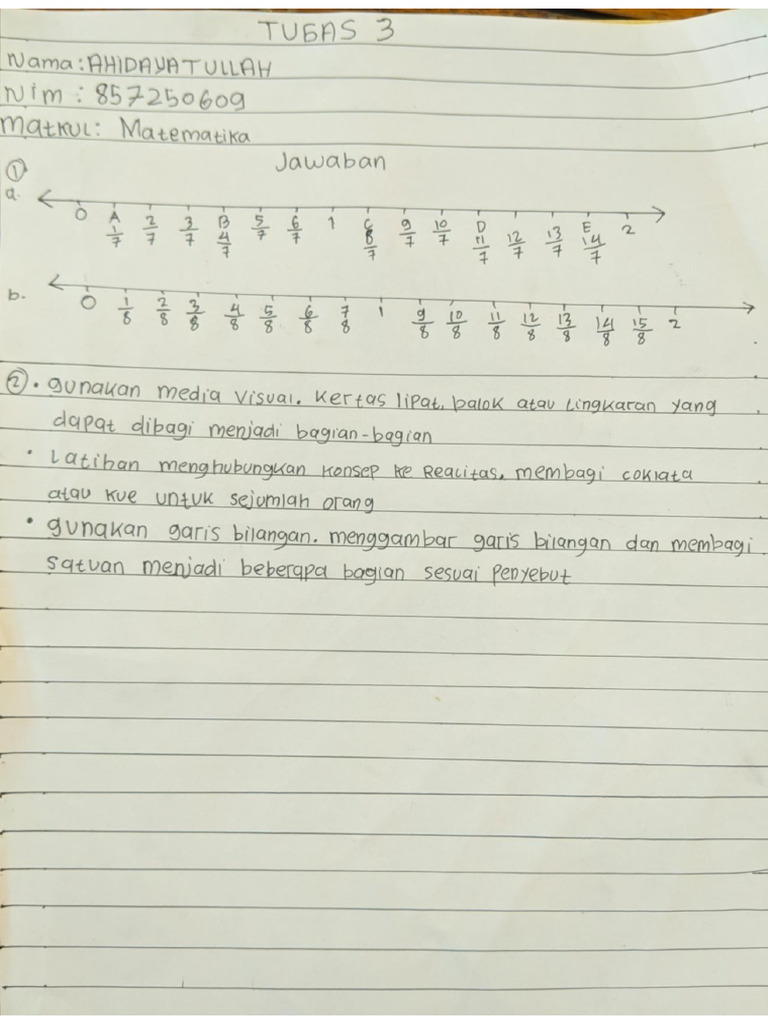 TUGAS 3
Nama: AHIDAYATULLAH
Nim : 857250609
Matkul: Matematika
Jawaban
①
a.
0 A 1/7 2/7 3/7 B 4/7 5/7 6/7 1 C 8/7 9/7 10/7 D 11/7 12/7 13/7 E 14/7 2
b.
0 1/8 2/8 3/8 4/8 5/8 6/8 7/8 1 9/8 10/8 11/8 12/8 13/8 14/8 15/8 2
② • gunakan media visual. kertas lipat, balok atau lingkaran yang
dapat dibagi menjadi bagian-bagian
• Latihan menghubungkan konsep ke Realitas. membagi coklata
atau kue untuk sejumlah orang
• gunakan garis bilangan. menggambar garis bilangan dan membagi
satuan menjadi beberapa bagian sesuai penyebut